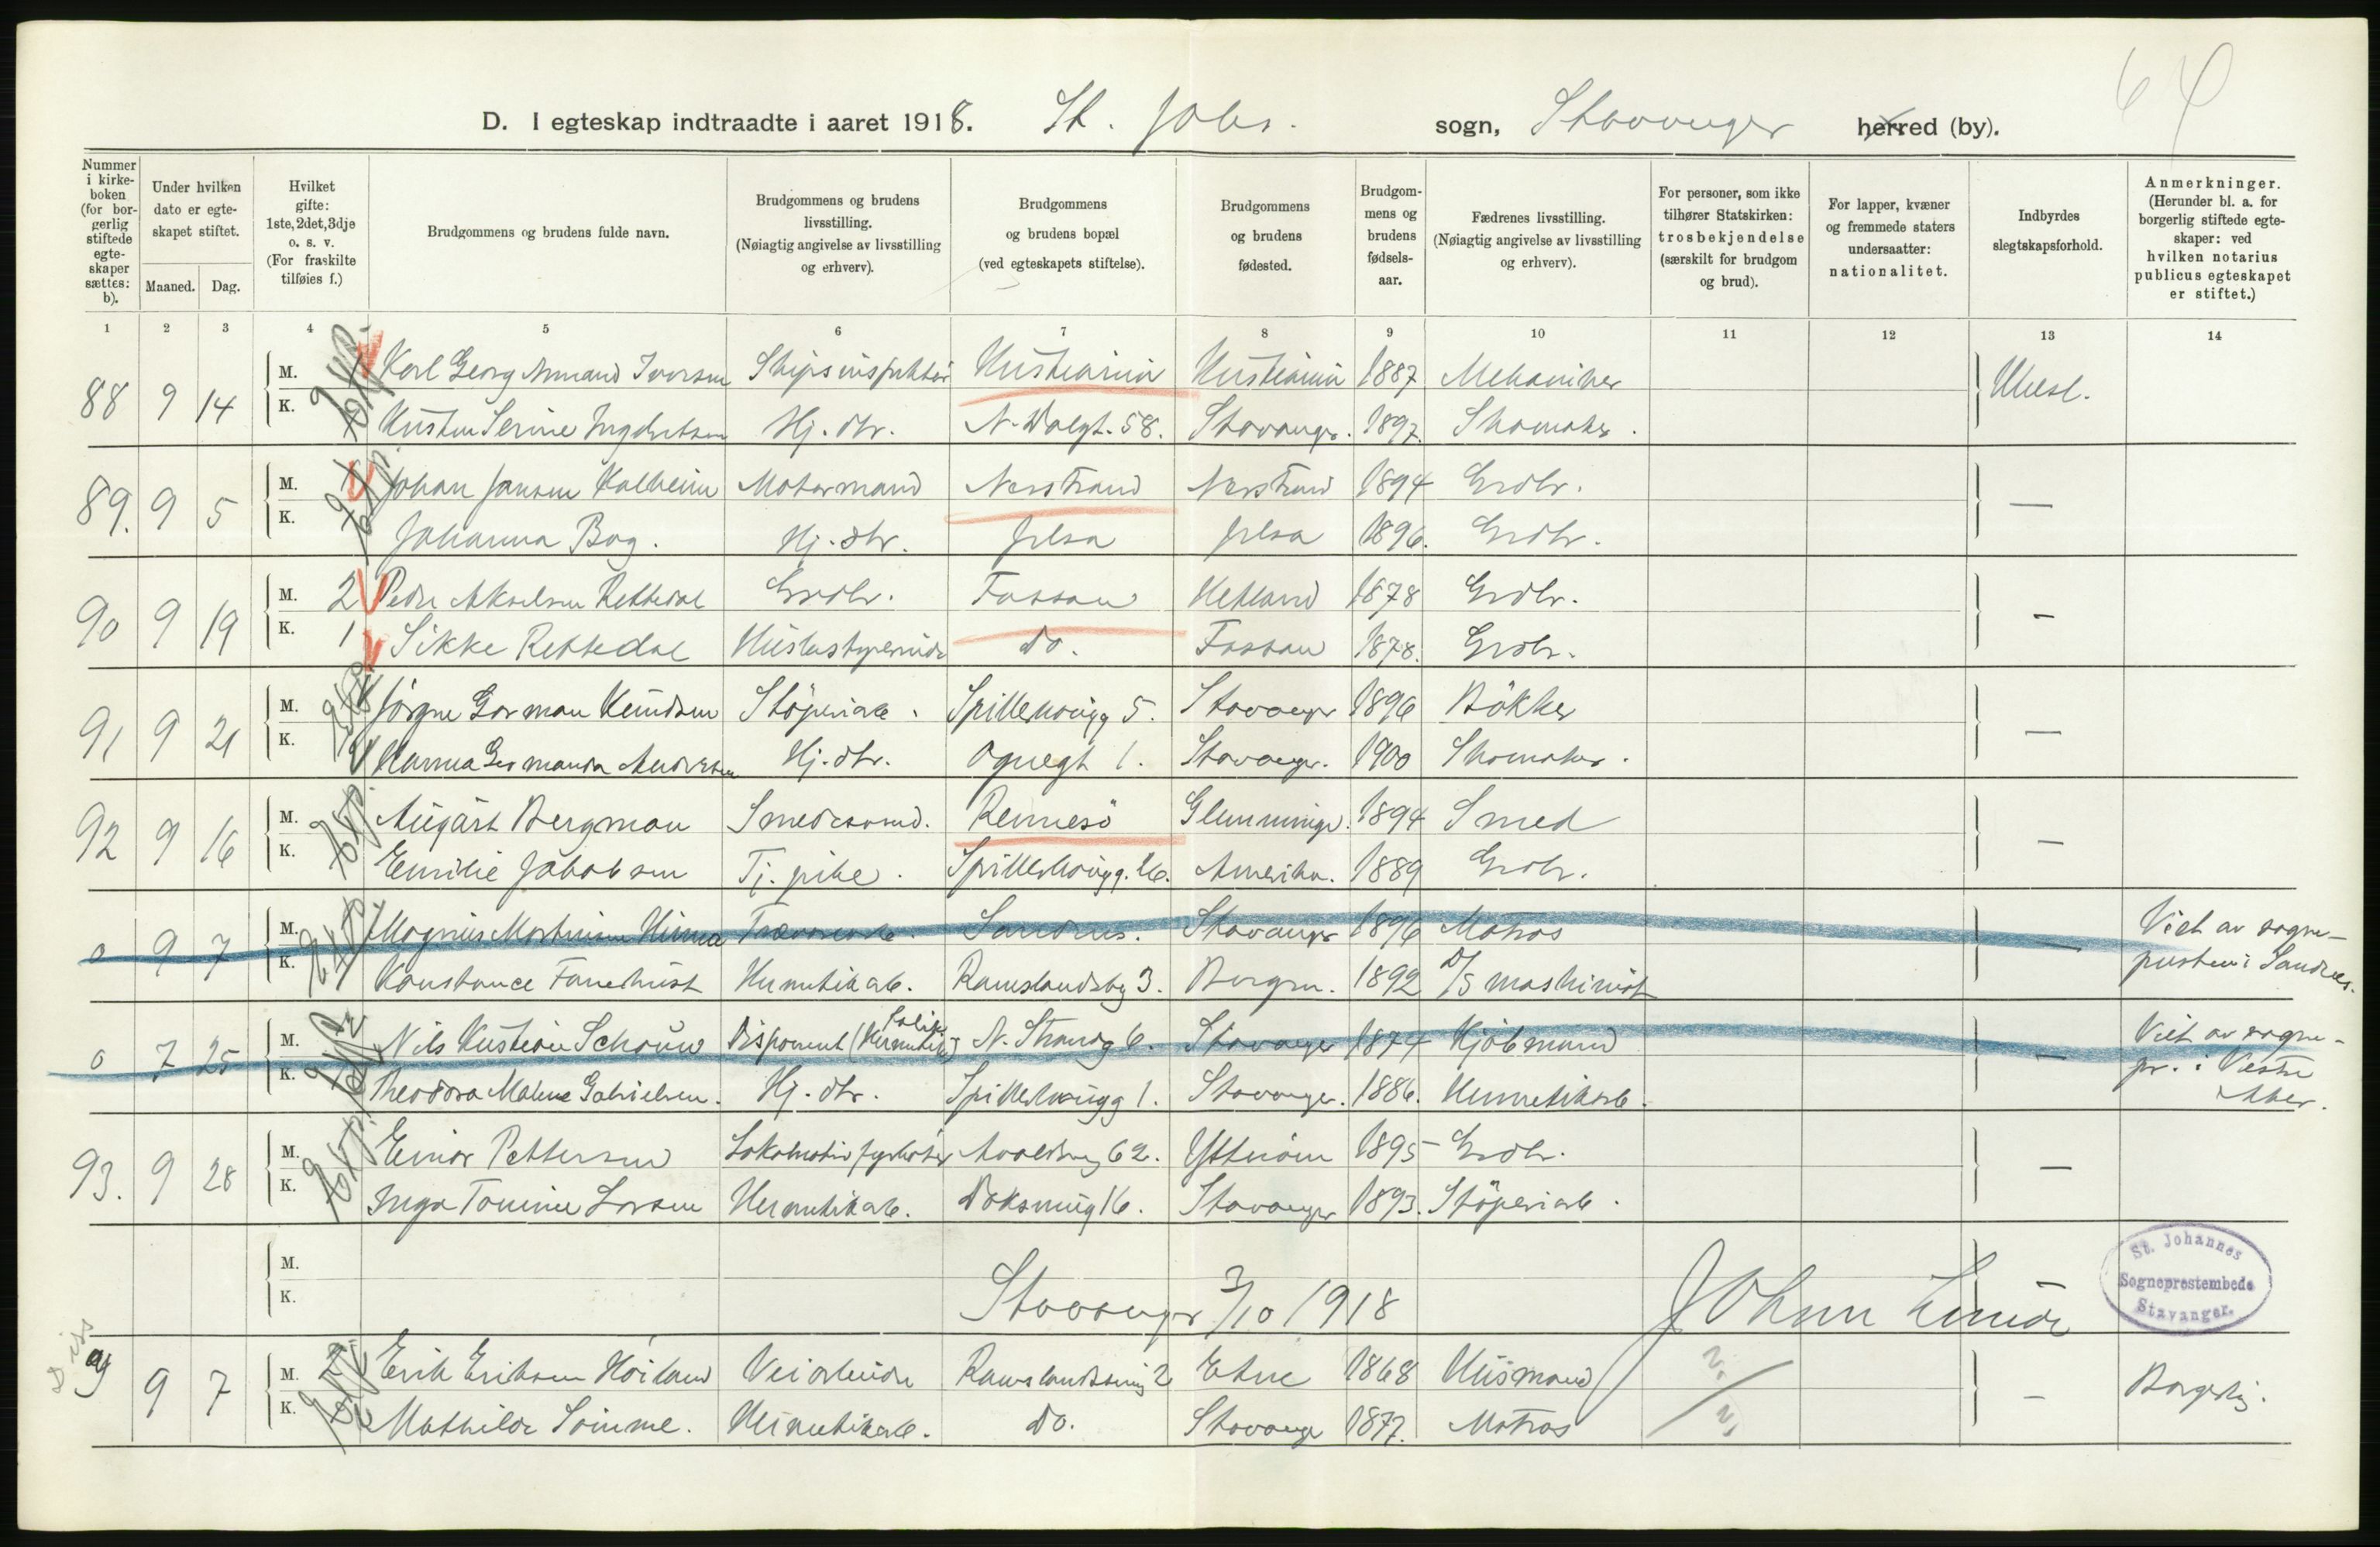 64
D. I egteskap indtraadte i aaret 1918. St. Johs. sogn, Stavanger herred (by).
Nummer i kirke-boken (for bor-gerlig stiftede egte-skaper sættes: b).
Under hvilken dato er egte-skapet stiftet.
Maaned. Dag.
Hvilket gifte: 1ste, 2det, 3dje o. s. v. (For fraskilte tilføies f.)
Brudgommens og brudens fulde navn.
Brudgommens og brudens livsstilling. (Nøiagtig angivelse av livsstilling og erhverv).
Brudgommens og brudens bopæl (ved egteskapets stiftelse).
Brudgommens og brudens fødested.
Brudgom-mens og brudens fødsels-aar.
Fædrenes livsstilling. (Nøiagtig angivelse av livsstilling og erhverv).
For personer, som ikke tilhører Statskirken: trosbekjendelse (særskilt for brudgom og brud).
For lapper, kvæner og fremmede staters undersaatter: nationalitet.
Indbyrdes slegtskapsforhold.
Anmerkninger. (Herunder bl. a. for borgerlig stiftede egte-skaper: ved hvilken notarius publicus egteskapet er stiftet.)
1 2 3 4 5 6 7 8 9 10 11 12 13 14
88 9 14 M. Karl Georg Armand Iversen Skipsinspektør Kristiania Kristiania 1887 Mekaniker Ubesl.
K. Kristine Serine Ingebretsen Hj. dtr. N. Dalgt. 58. Stavanger. 1897. Skomaker.
89. 9 5 M. Johan Jansen Kalheim Motormand Nerstrand Nerstrand 1894 Grdbr. —
K. Johanna Bag. Hj. dtr. Jelsa Jelsa 1896. Grdbr.
90 9 19 M. 2 Peder Akselsen Rettedal Grdbr. Fossan Hetland 1878 Grdbr. —
K. 1 Sikke Rettedal Husbestyrerinde do. Fossan 1878. Grdbr.
91 9 21 M. Jørgen Gorman Knudsen Støperiarb. Spilderhougg 5. Stavanger 1896 Bøkker —
K. Hanna Germanda Andersen Hj. dtr. Ognegt 1. Stavanger. 1900 Skomaker.
92 9 16 M. August Bergman Smedesvend. Rennesö Glemminge. 1894 Smed —
K. Emilie Jakobsen Tj. pike. Spilderhougg. 26. Amerika. 1889 Grdbr.
0 9 7 M. Magnus Martinsen Hinna Trævarearb. Sandnes. Stavanger 1896 Matros — Viet av sogne-
K. Konstance Fanehust Hermetikarb. Ramslandsvg 3. Bergen. 1892 D/S maskinist presten i Sandnes.
0 7 25 M. Nils Kristian Schouw Disponent (Hermetikfabrik) N. Strandg 6. Stavanger 1874 Kjøbmand — Viet av sogne-
K. Theodora Malene Gabrielsen. Hj. dtr. Spilderhougg 1. Stavanger. 1886. Hermetikarb. pr. i Vestre
Aker.
93. 9 28 M. Einar Pettersen Lokomotivfyrbøter Avaldsnesg 62. Ytterøen 1895 Grdbr. —
K. Inga Tomine Larsen Hermetikarb. Voksmug 16. Stavanger 1893. Støperiarb.
M.
K. Stavanger 3/10 1918 Johan Lunde
St. Johannes
Sogneprestembede
Stavanger.
9 7 M. 2 Erik Eriksen Høiland Veiarbeider Ramslandsveig 2 Etne 1868 Husmand — Borgerlig.
K. Mathilde Sømme. Hermetikarb. do. Stavanger 1877. Matros